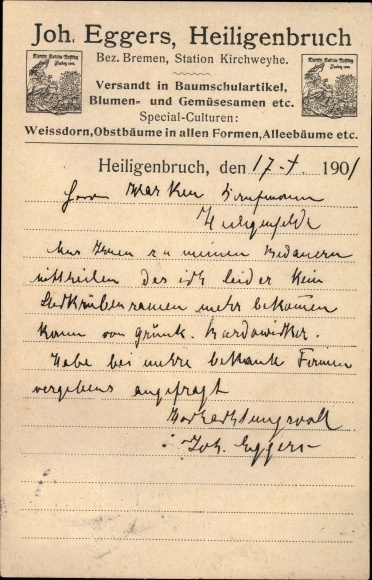 Joh. Eggers, Heiligenbruch
Bez. Bremen, Station Kirchweyhe.
Versandt in Baumschulartikel,
Blumen- und Gemüsesamen etc.
Special-Culturen:
Weissdorn, Obstbäume in allen Formen, Alleebäume etc.
Heiligenbruch, den 17. 1901
Herrn
Heiligenfelde
Muss Ihnen zu meinem Bedauern
mittheilen das ich leider kein
Steckrübensamen mehr bekommen
kann von grünk.
Habe bei mehre bekante Firmen
vergebens angefragt
Hochachtungsvoll
Joh. Eggers